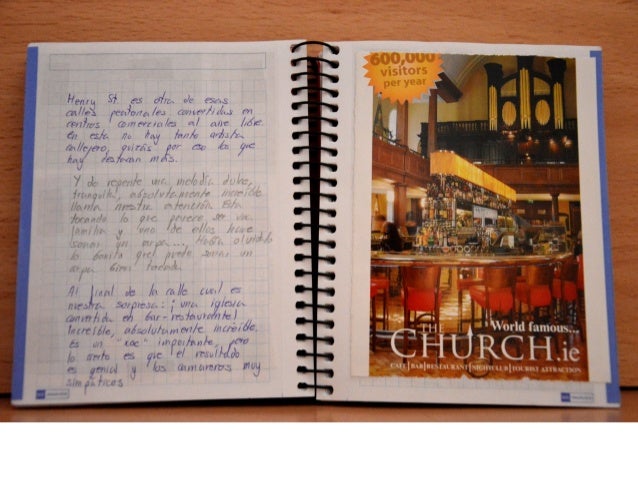 Henry St. es otra de esas
calles peatonales convertidas en
centros comerciales al aire libre.
En esta no hay tanto artista
callejero, quizás por eso los que
hay destacan más.
Y de repente una melodía dulce,
tranquila, absolutamente increíble
llama nuestra atención. Está
tocando lo que parece ser una
familia y uno de ellos hace
sonar un arpa.... Había olvidado
lo bonita que puede sonar un
arpa bien tocada.
Al final de la calle cual es
nuestra sorpresa: ¡una iglesia
convertida en bar-restaurante!
Increíble, absolutamente increíble,
es un importante, pero
lo cierto es que el resultado
es genial y los camareros muy
simpáticos
600,000
visitors
per year
World famous...
THE
CHURCH.ie
CAFE|BAR|RESTAURANT|NIGHTCLUB|TOURIST ATTRACTION